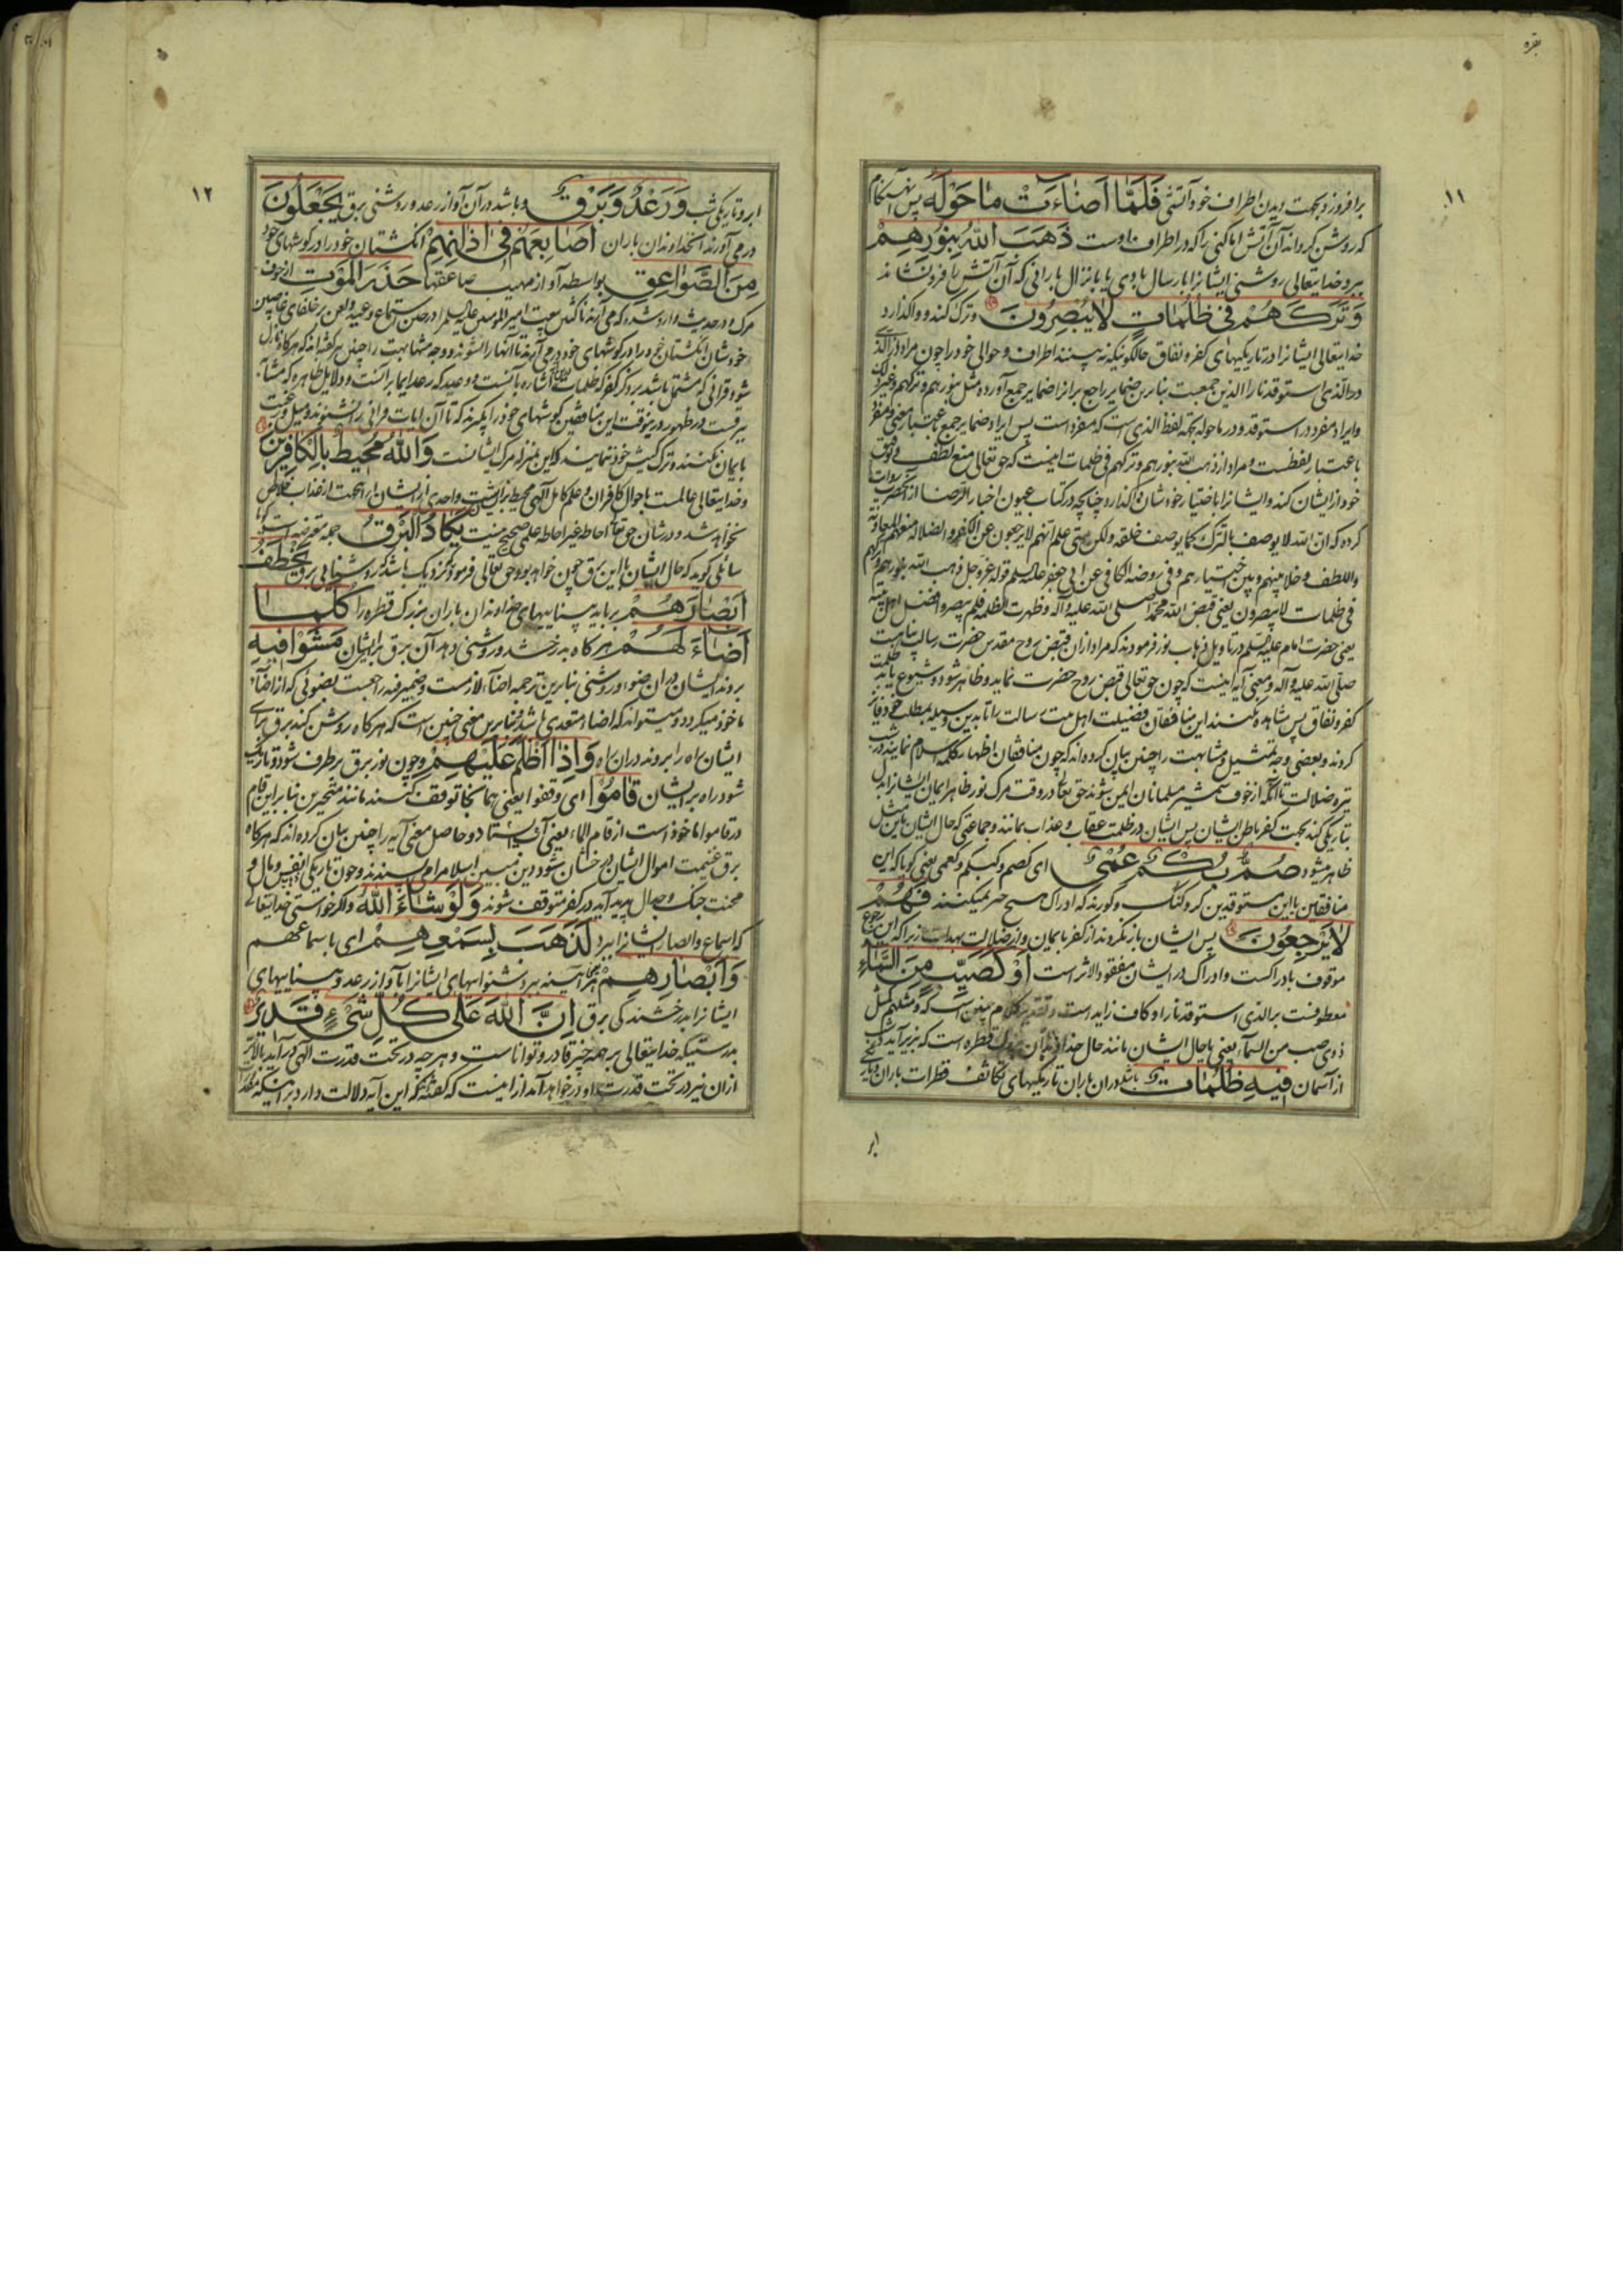 بقره
۱۱
برافروزد بجهت دیدن اطراف خود آتشی فَلَمَّا اَضٰاءَتْ مٰا حَوْلَهُ پس آن هنکام
که روشن کرداند آن آتش اماکنی را که در اطراف اوست ذَهَبَ اللهُ بِنُورِهِمْ
ببرد خدایتعالی روشنی ایشانرا بارسال بادی یا بانزال بارانی که آن آتش را فرونشاند
وَتَرَكَهُمْ فى ظُلُمٰاتٍ لاٰيُبْصِرُونَ وترک کند و واکذارد
خدایتعالی ایشانرا در تاریکیهای کفر و نفاق حالکونیکه نه بینند اطراف و حوالی خود را چون مراد از الذی
در الّذی استوقد نارا الذین جمعیت بنابرین ضمایر راجع برانرا ضمایر جمع آورده مثل بنورهم وترکهم وغیر ذلک
وایراد مفرد در استوقد و در ماحوله بجهته لفظ الذی است که مفرد است پس ایراد ضمایر جمع باعتبار معنی ومفرد
باعتبار لفظست ومراد از ذهب الله بنورهم وترکهم فی ظلمات اینست که حق تعالی منع لطف وتوفیق
خود از ایشان کند وایشانرا باختیار خودشان واکذارد چنانچه در کتاب عیون اخبار الرضا از آنحضرت روایت
کرده که ان الله لا یوصف بالترک کما یوصف خلقه ولکن متی علم انهم لا یرجعون عن الکفر والضلاله منعهم المعاونة
واللطف وخلا بینهم وبین اختیارهم وفی روضه الکافی عن ابی جعفر علیه السلم قوله عزوجل ذهب الله بنورهم وترکهم
فی ظلمات لایبصرون یعنی قبض الله محمدا صلی الله علیه وآله وظهرت الظلمه فلم یبصروا فضل اهل بیته
یعنی حضرت امام علیه السلم در تاویل ذهاب نور فرمودند که مراد ازان قبض روح مقدس حضرت رسالت پناهست
صلی الله علیه وآله ومعنی آیه اینست که چون حق تعالی قبض روح حضرت نماید وظاهر شود وشیوع یابد ظلمت
کفر ونفاق پس مشاهده نکنند این منافقان فضیلت اهل بیت رسالت را تا بدین وسیله بمطلب خود فایز
کردند وبعضی وجه تمثیل ومشابهت را چنین بیان کرده‌اند که چون منافقان اظهار کلمه اسلام نمایند در شب
تیره ضلالت تا آنکه از خوف شمشیر مسلمانان ایمن شوند حق تعالی در وقت مرک نور ظاهر ایمان ایشانرا بدل
بتاریکی کند بجهت کفر باطن ایشان پس ایشان در ظلمت عقاب وعذاب بمانند وجماعتی که حال ایشان باین مثل
ظاهر میشود صُمٌّ بُكْمٌ عُمْىٌ ای کصم وکبکم وکعمی یعنی کویا که این
منافقین یا این مستوقدین کر وکنک وکورند که ادراک هیچ چیز نمیکنند فَهُمْ
لاٰيَرْجِعُونَ پس ایشان بازنکردند از کفر بایمان واز ضلالت بهدایت زیرا که این رجوع
موقوف بادراکست وادراک در ایشان مفقود الاثر است اَوْ كَصَيِّبٍ مِنَ السَّمٰاءِ
معطوفست بر الذی استوقد نارا وکاف زاید است وتقدیر کلام چنین است که ومثلهم کمثل
ذوی صیب من السماء یعنی یا حال ایشان مانند حال خداوندان بزرک قطره است که بزیر آید
از آسمان فيهِ ظُلُمٰاتٌ باشد در ان باران تاریکیهای تکاثف قطرات باران وتاریکی
ابر
۱۲
ابر وتاریکی شب وَرَعْدٌ وَبَرْقٌ وباشد در آن آواز رعد وروشنی برق يَجْعَلُونَ
درمی‌آورند آنخداوندان باران اَصٰابِعَهُمْ فى اٰذٰانِهِمْ انکشتان خود را در کوشهای خود
مِنَ الصَّوٰاعِقِ بواسطه آواز مهیب صاعقها حَذَرَ الْمَوْتِ از خوف
مرک ودر حدیث وارد شده که می‌آرند ناکثین بیعت امیر المومنین علیه السلم را در حین استماع وعید ولعن بر خلفای غاصبین
خودشان انکشتان خود را در کوشهای خود درمی‌آرند تا آنها را نشنوند ووجه مشابهت را چنین نیز کفته‌اند که هرکاه نازل
شود قرانی که مشتمل باشد بر ذکر کفر که ظلمات اشاره بآنست ووعید که رعد ایما برانست ودلایل ظاهره که مشابه
برقست در ظهور درینوقت این منافقین کوشهای خود را بکیرند که تا آن ایات قرانی را نشنوند ومیل ورغبت
بایمان نکنند وترک کیش خود ننمایند که این بمنزله مرک ایشانست وَاللهُ مُحيطٌ بِالْكٰافِرينَ
وخدایتعالی عالمست باحوال کافران وعلم کامل الهی محیط بر ایشانست واحدی از ایشان را نجات از عذاب خلاص
نخواهد شد ودر شان حق تعالی احاطه غیر احاطه علمی صحیح نیست يَكٰادُ الْبَرْقُ جمله معترضه است کویا
سائلی کوید که حال ایشان با این برق چون خواهد بود حق تعالی فرمود که نزدیک باشد که روشنایی برق يَخْطَفُ
اَبْصٰارَهُمْ برباید بینایی‌های خداوندان باران بزرک قطره را كُلَّمٰا
اَضٰاءَ لَهُمْ هرکاه بدرخشد وروشنی دهد آن برق برایشان مَشَوْا فيهِ
بروند ایشان در ان ضوء وروشنی بنابرین ترجمه اضاء لازمست وضمیر فیه راجعست بضوئی که از اضاء
ماخوذ میکردد ومیتواند که اضاء متعدی باشد وبنابرین معنی چنین است که هرکاه روشن کند برق برای
ایشان راه را بروند در ان راه وَاِذٰا اَظْلَمَ عَلَيْهِمْ وچون نور برق برطرف شود وتاریک
شود راه برایشان قٰامُوا ای وقفوا یعنی همانجا توقف کنند مانند متحیرین بنابراین قام
در قاموا ماخوذ است از قام الماء یعنی آب بایستاد وحاصل معنی آیه را چنین بیان کرده‌اند که هرکاه
برق غنیمت اموال ایشان درخشان شود دین مبین اسلام را می‌پسندند وچون تاریکی نقص مال و
محنت جنک وجدال پدید آید در کفر متوقف شوند وَلَوْ شٰاءَ اللهُ واکر خواستی خدایتعالی
که اسماع وابصار ایشانرا ببرد لَذَهَبَ بِسَمْعِهِمْ ای باسماعهم
وَاَبْصٰارِهِمْ هر آینه ببرد شنوایهای ایشانرا بآواز رعد وبینایهای
ایشانرا بدرخشندکی برق اِنَّ اللهَ عَلٰى كُلِّ شَىْءٍ قَديرٌ
بدرستیکه خدایتعالی بر همه چیز قادر وتواناست وهرچه در تحت قدرت الهی درآید بالاتر
ازان نیز در تحت قدرت او درخواهد آمد از اینست که کفته‌اند که این آیه دلالت دارد بر اینکه مقدورات